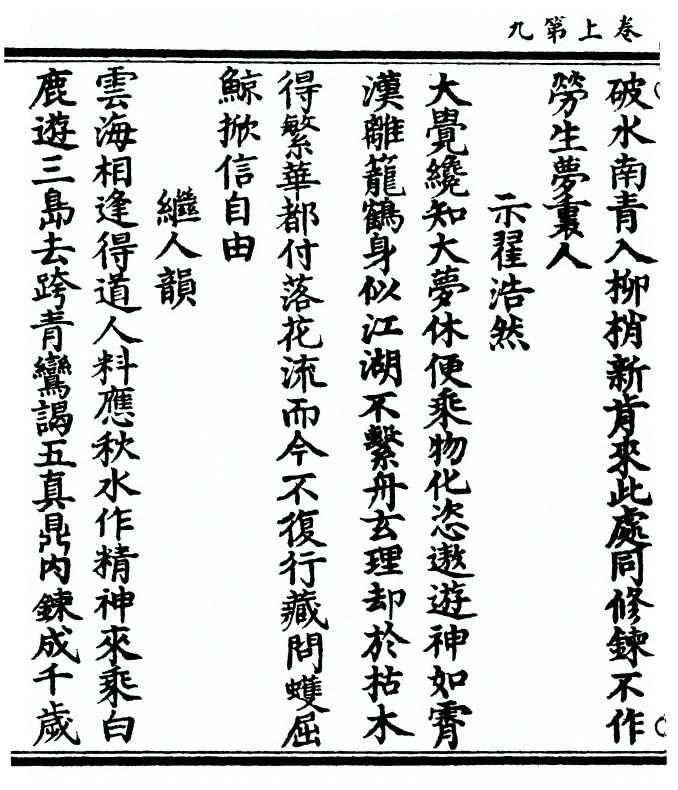 卷上第九
破水南青入柳梢新肯來此處同修鍊不作
勞生夢裏人
示翟浩然
大覺纔知大夢休便乘物化恣遨遊神如霄
漢離籠鶴身似江湖不繫舟玄理却於枯木
得繁華都付落花流而今不復行藏問蠖屈
鯨掀信自由
繼人韻
雲海相逢得道人料應秋水作精神來乘白
鹿遊三島去跨青鸞謁五真鼎内鍊成千歲